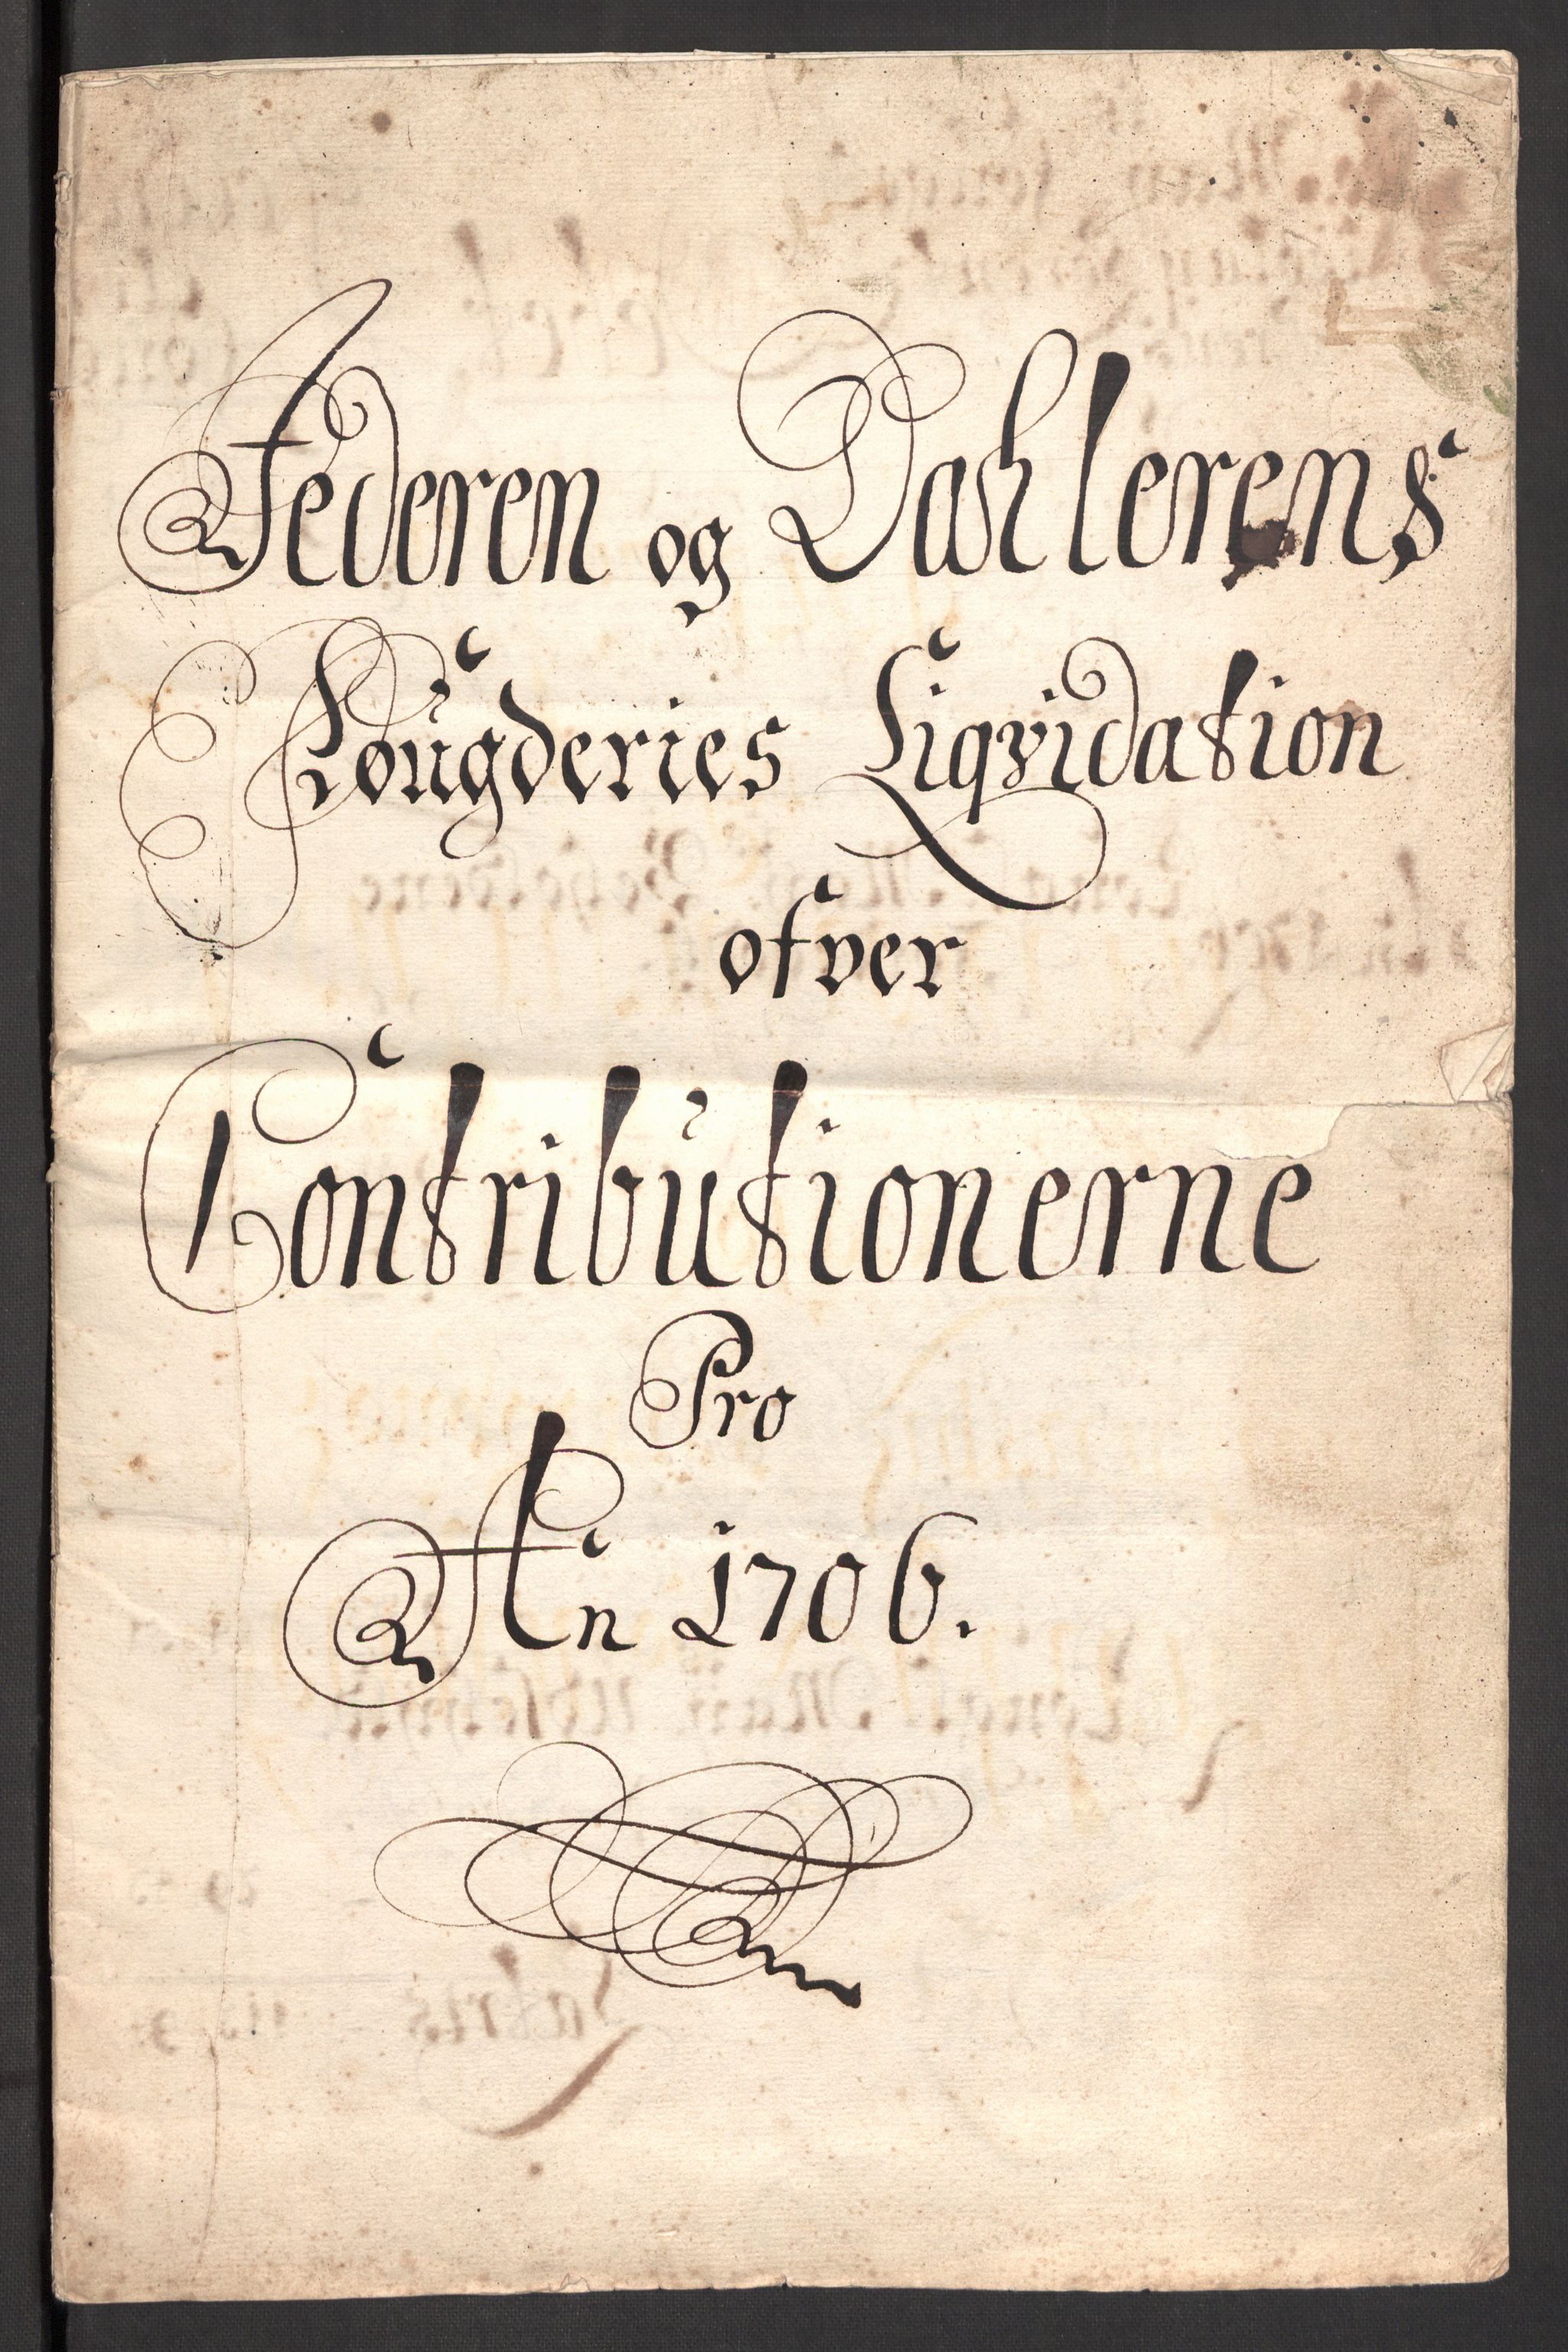 Jederen og Dahlerens
Fougderies Liqvidation
ofver
Contributionerne
Pro
An 1706.